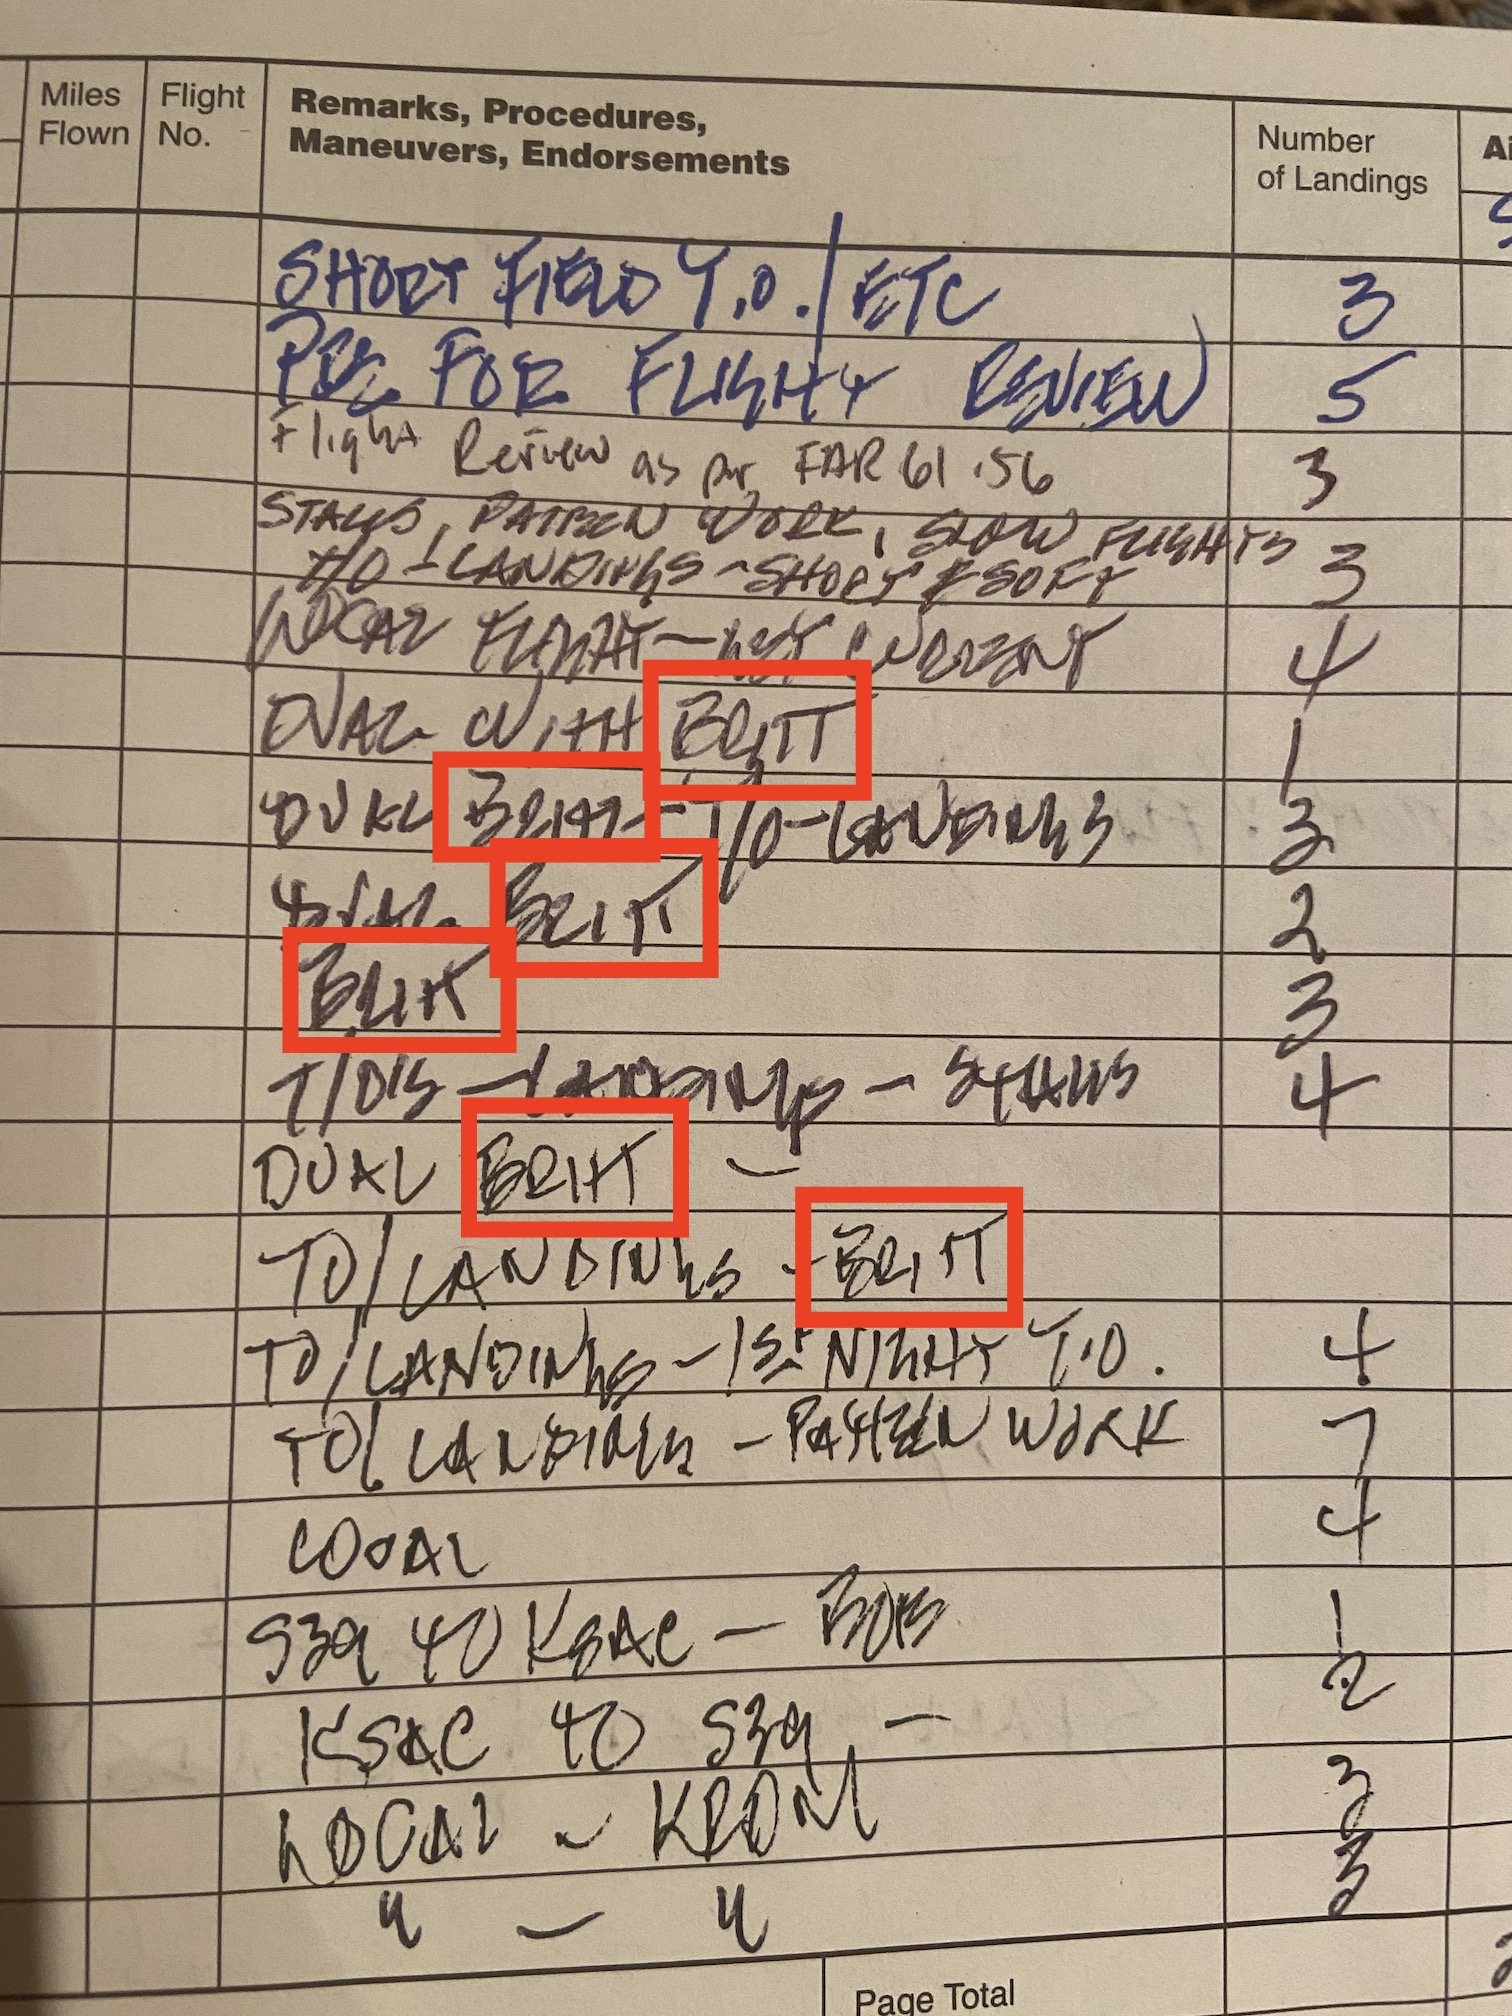 Miles Flown
Flight No.
Remarks, Procedures,
Maneuvers, Endorsements
Number of Landings
SHORT FIELD T.O. / ETC 3
FOR FLIGHT REVIEW 5
Flight Review as per FAR 61.56 3
STALLS, PATTERN WORK, SLOW FLIGHTS
T/O + LANDINGS - SHORT & SOFT 3
LOCAL FLIGHT - GET CURRENT 4
DUAL WITH BRITT 1
DUAL BRITT - T/O - LANDINGS 3
DUAL BRITT 2
BRITT 3
T/O'S - LANDINGS - STALLS 4
DUAL BRITT -
TO/LANDINGS - BRITT
TO/LANDINGS - 1ST NIGHT T.O. 4
TO/LANDINGS - PATTERN WORK 7
LOCAL 4
S39 TO KSAC - BOB 1
KSAC TO S39 - 2
LOCAL - KRDM 3
" - " 3
Page Total